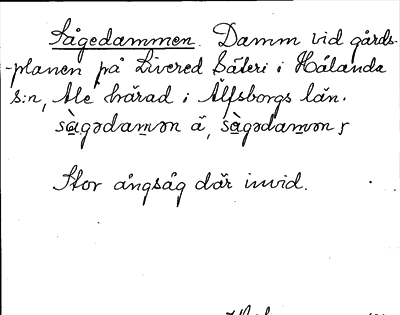 Sågedammen. Damm vid gårds-
-planen på Livered Säteri i Hålanda
s:n, Ale härad i Älfsborgs län.
sàgədamən ä, sàgədamən ɼ
Stor ångsåg där invid.